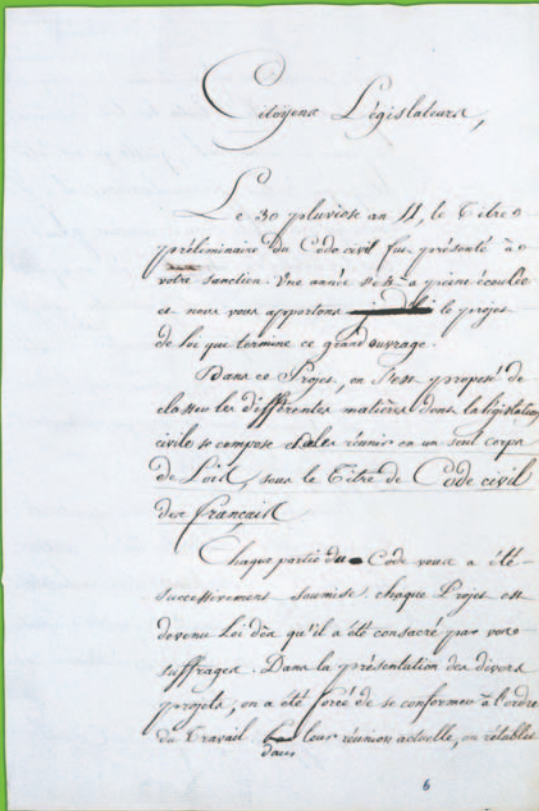 Citoyens Législateurs,
Le 30 pluviose an 11, le Titre
préliminaire du Code civil fut présenté à
votre sanction. Une année s'est à peine écoulée
et nous vous apportons le projet
de loi qui termine ce grand ouvrage.
Dans ce Projet, on s'est proposé de
classer les différentes matières dont la législation
civile se compose et de les réunir en un seul corps
de Loix, sous le Titre de Code civil
des français
Chaque partie du Code vous a été
successivement soumise. chaque Projet est
devenu Loi dès qu'il a été consacré par vos
suffrages. Dans la présentation des divers
projets, on a été forcé de se conformer à l'ordre
du Travail. dans leur réunion actuelle, on rétablit
6